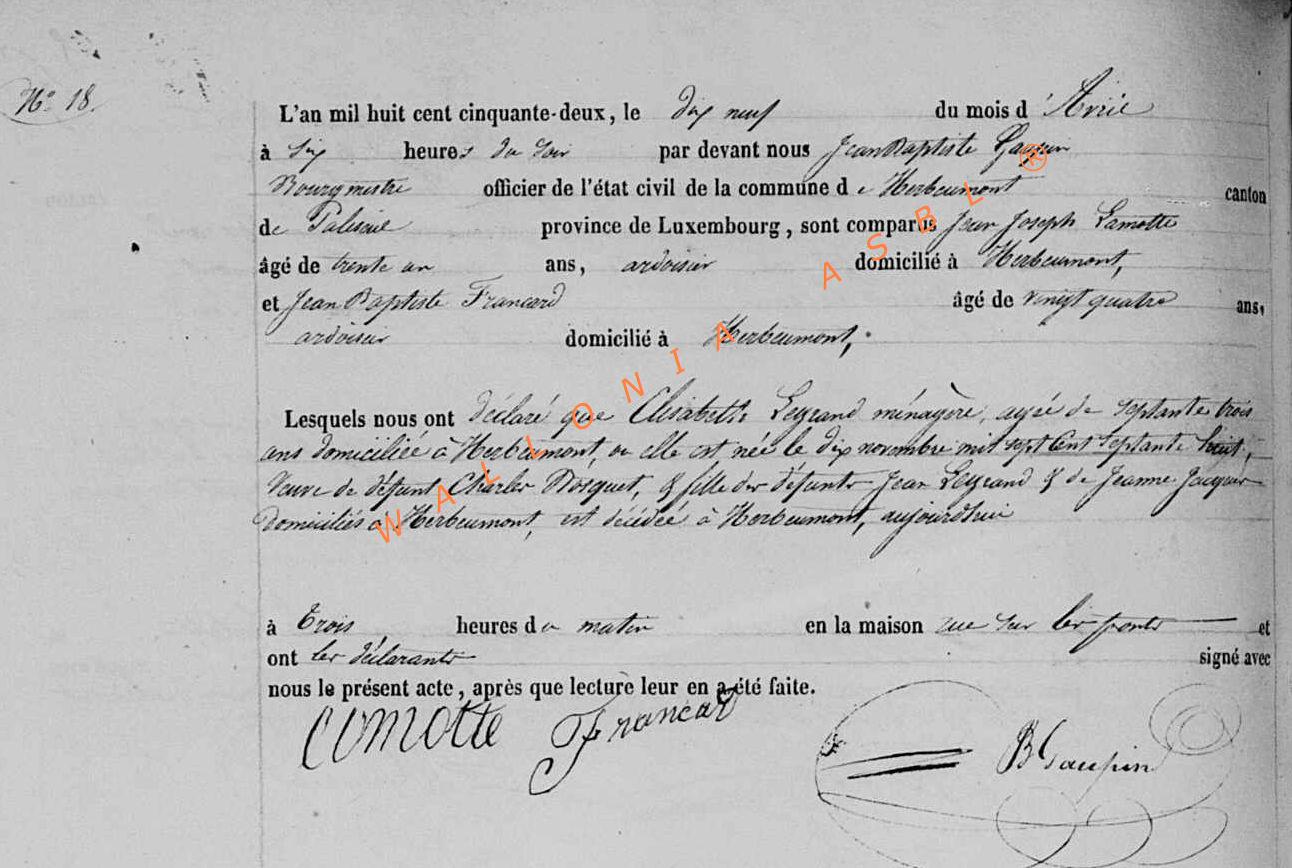 N° 18
L'an mil huit cent cinquante-deux, le dix neuf du mois d'Avril
à six heures du soir par devant nous Jean Baptiste Gaupin
Bourgmestre officier de l'état civil de la commune de Herbeumont canton
de Paliseul province de Luxembourg, sont comparus Jean Joseph Lamotte
âgé de trente un ans, ardoisier domicilié à Herbeumont,
et Jean Baptiste Francard âgé de vingt quatre ans,
ardoisier domicilié à Herbeumont,
Lesquels nous ont déclaré que Elisabeth Legrand ménagère, agée de septante trois
ans domiciliée à Herbeumont, ou elle est née le dix novembre mil sept cent septante huit,
veuve de défunt Charles Bosquet, & fille des défunts Jean Legrand & de Jeanne Jacques
domiciliés à Herbeumont, est décédée à Herbeumont, aujourdhui
à trois heures du matin en la maison rue sur les ponts et
ont les déclarants signé avec
nous le présent acte, après que lecture leur en a été faite.
Francar
B Gaupin
WALLONIA ASBL ®